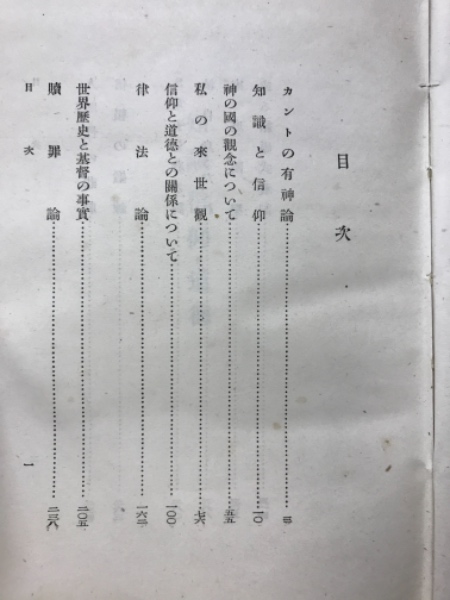 目次
カントの有神論…………三
知識と信仰…………一〇
神の國の觀念について…………五五
私の來世觀…………七六
信仰と道德との關係について…………一〇〇
律法論…………一六二
世界歷史と基督の事實…………二〇五
贖罪論…………二三八
目次 一